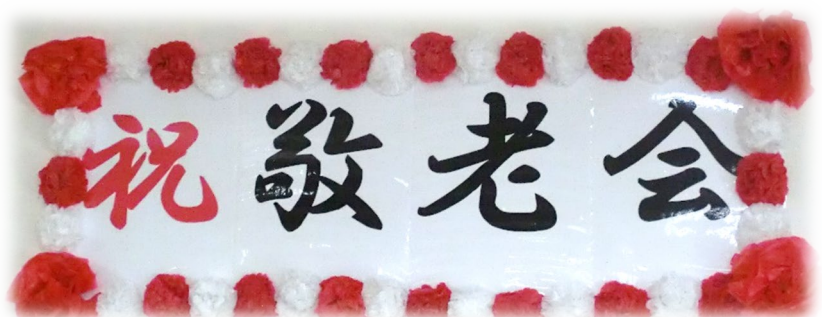 祝敬老会